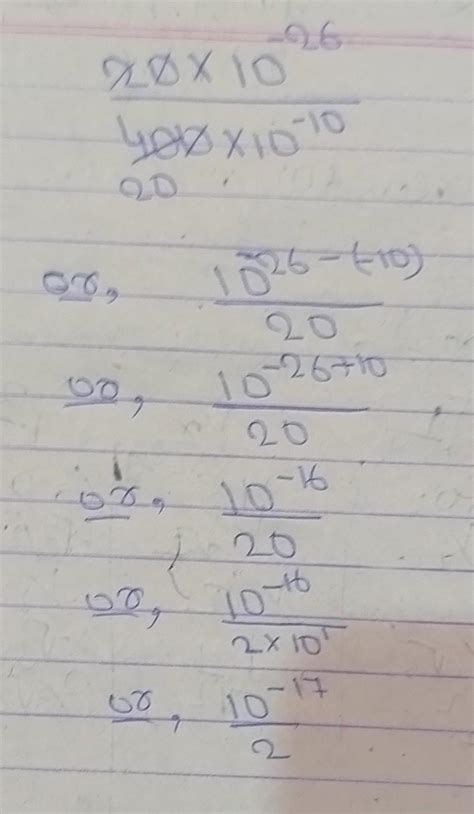 20 × 10⁻²⁶
400 × 10⁻¹⁰
20
or, 10⁻²⁶⁻⁽⁻¹⁰⁾
20
or, 10⁻²⁶⁺¹⁰
20
or, 10⁻¹⁶
20
or, 10⁻¹⁶
2×10¹
or, 10⁻¹⁷
2